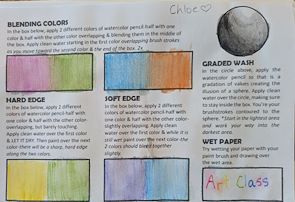 Chloe ♡
BLENDING COLORS
In the box below, apply 2 different
colors of watercolor pencil half with one
color & half with the other color
overlapping & blending them in the middle
of the box. Apply clean water starting in the first color overlapping brush strokes
as you move toward the second color & the end of the box. 2x
GRADED WASH
In the circle above, apply the
watercolor pencil so that is a
gradation of values creating the
illusion of a sphere. Apply clean
water over the circle, making sure
to stay inside the box. You're your
brushstrokes contoured to the
sphere. *Start in the lightest area
and work your way into the
darkest area.
HARD EDGE
In the box below, apply 2
different colors of watercolor
pencil half with one color & half
with the other color
overlapping, but barely touching.
Apply clean water over the first color
& LET IT DRY. Then paint over the next
color-there will be a sharp, hard edge
along the two colors.
SOFT EDGE
In the box below, apply 2 different
colors of watercolor pencil half with
one color & half with the other color
slightly overlapping. Apply clean
water over the first color & while it is
still wet paint over the next color-the
2 colors should bleed together
slightly.
WET PAPER
Try wetting your paper with your
paint brush and drawing over
the wet area.
Art Class